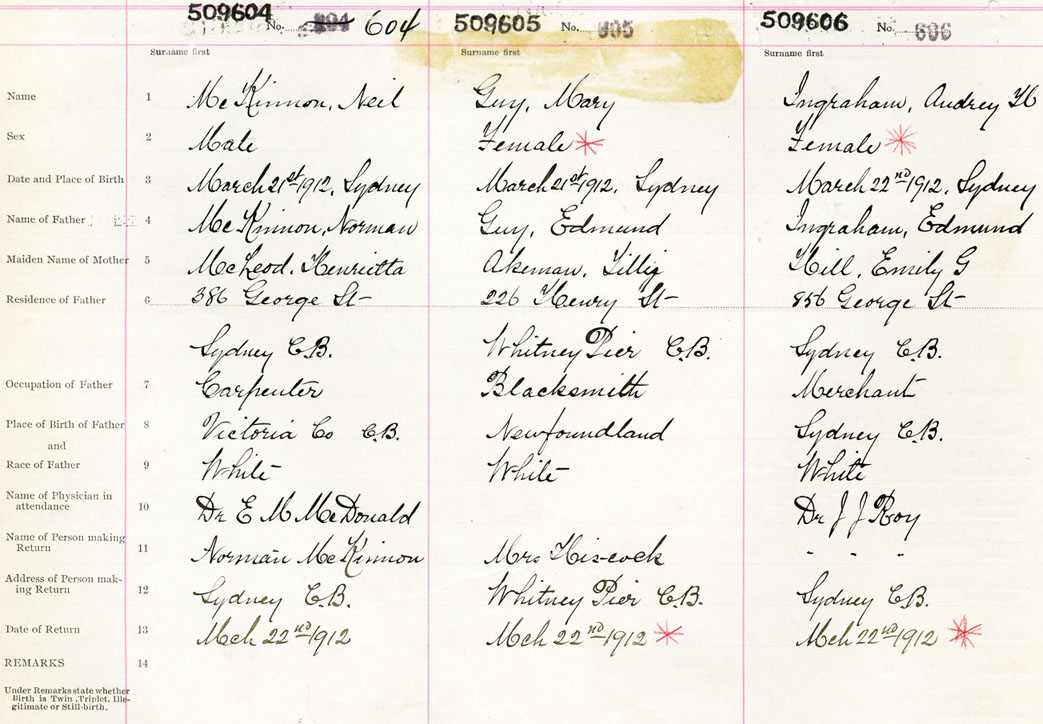 509604 No. 604 604 509605 No. 605 509606 No. 606
Surname first Surname first Surname first
Name 1 McKinnon, Neil Guy, Mary Ingraham, Audrey H
Sex 2 Male Female Female
Date and Place of Birth 3 March 21st 1912, Sydney March 21st 1912, Sydney March 22nd 1912, Sydney
Name of Father 4 McKinnon, Norman Guy, Edmund Ingraham, Edmund
Maiden Name of Mother 5 McLeod, Henrietta Akeman, Hill, Emily G
Residence of Father 6 386 George St 226 Henry St 856 George St
Sydney C.B. Whitney Pier C.B. Sydney C.B.
Occupation of Father 7 Carpenter Blacksmith Merchant
Place of Birth of Father 8 Victoria Co C.B. Newfoundland Sydney C.B.
and
Race of Father 9 White White White
Name of Physician in
attendance 10 Dr E M McDonald Dr J J Roy
Name of Person making
Return 11 Norman McKinnon Mrs Hiscock " " "
Address of Person mak-
ing Return 12 Sydney C.B. Whitney Pier C.B. Sydney C.B.
Date of Return 13 Mch 22nd 1912 Mch 22nd 1912 Mch 22nd 1912
REMARKS 14
Under Remarks state whether
Birth is Twin, Triplet, Ille-
gitimate or Still-birth.